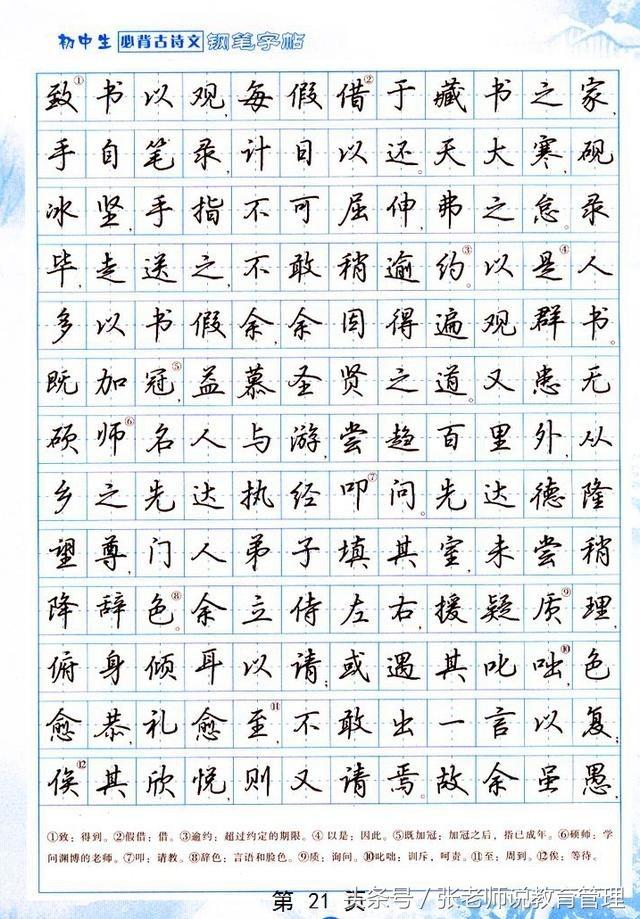 初中生 必背古诗文 钢笔字帖
致①书以观,每假借②于藏书之家,
手自笔录,计日以还。天大寒,砚
冰坚,手指不可屈伸,弗之怠。录
毕,走送之,不敢稍逾约③。以是④人
多以书假余,余因得遍观群书。
既加冠⑤,益慕圣贤之道。又患无
硕师⑥名人与游,尝趋百里外,从
乡之先达执经叩⑦问。先达德隆
望尊,门人弟子填其室,未尝稍
降辞色⑧。余立侍左右,援疑质⑨理,
俯身倾耳以请;或遇其叱咄⑩,色
愈恭,礼愈至⑪,不敢出一言以复;
俟⑫其欣悦,则又请焉。故余虽愚
①致:得到。②假借:借。③逾约:超过约定的期限。④以是:因此。⑤既加冠:加冠之后,指已成年。⑥硕师:学
问渊博的老师。⑦叩:请教。⑧辞色:言语和脸色。⑨质:询问。⑩叱咄:训斥,呵责。⑪至:周到。⑫俟:等待。
第 21 页
头条号/张老师说教育管理